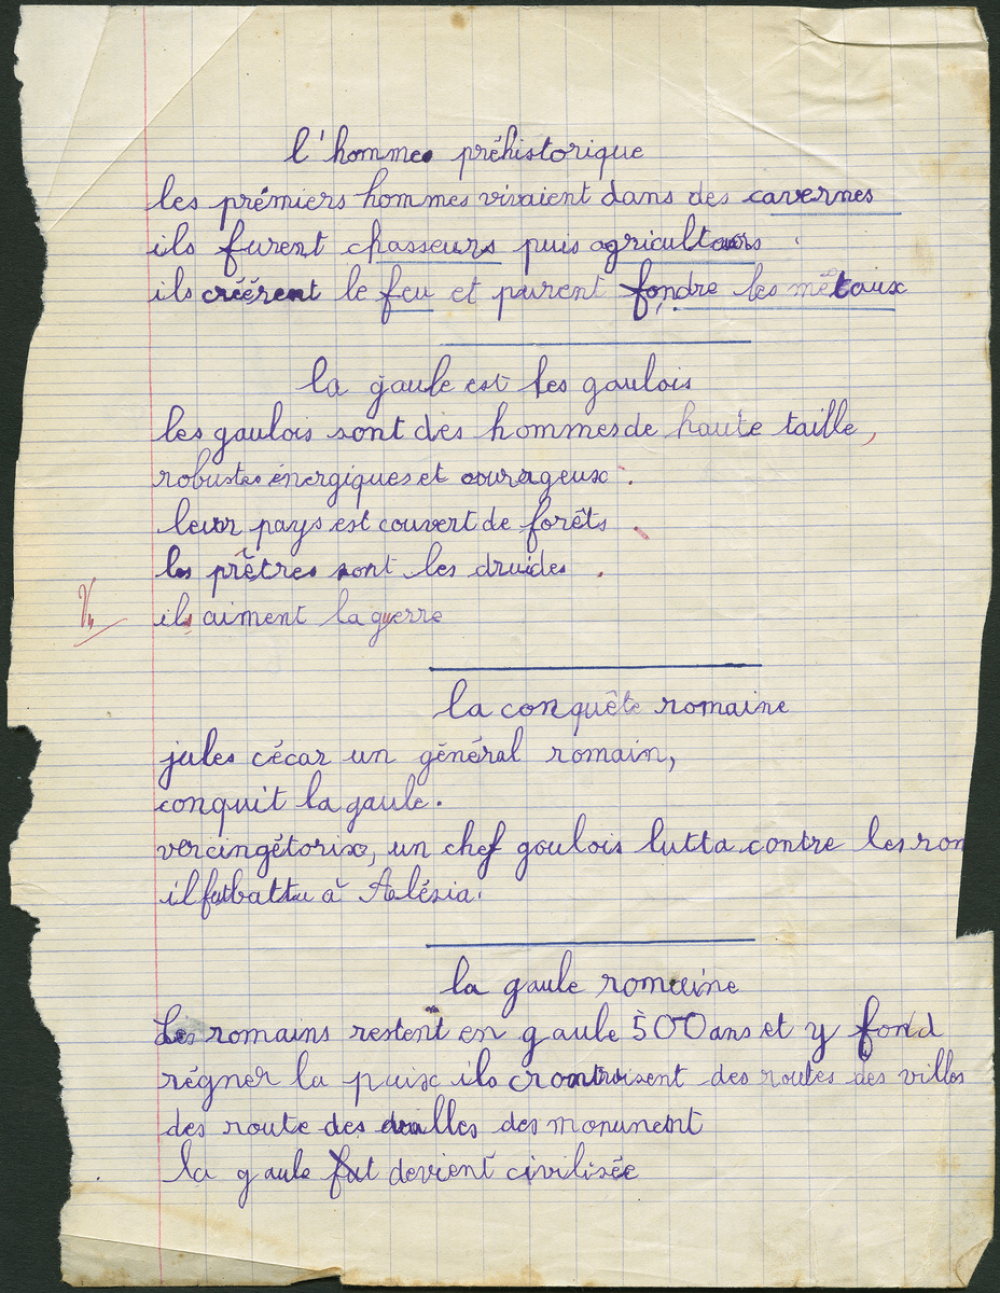 l'hommes préhistorique
les prémiers hommes vivaient dans des cavernes
ils furent chasseurs puis agriculteurs
ils créérent le feu et purent fondre les métaux
la gaule est les gaulois
les gaulois sont des hommes de haute taille,
robustes énergiques et courageux.
leur pays est couvert de forêts.
les prêtres sont les druides.
ils aiment la guerre
la conquête romaine
jules cécar un général romain,
conquit la gaule.
vercingétorix, un chef goulois lutta contre les rom
il fut battu à Alésia.
la gaule romaine
Les romains restent en gaule 500 ans et y fond
régner la paix ils construisent des routes des villes
des route des villes des monument
la gaule fut devient civilisée